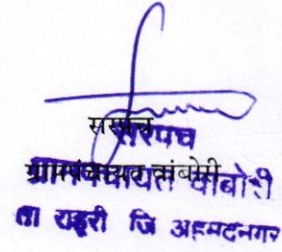 सरपंच
सरपंच
ग्रामपंचायत वांबोरी
ग्रामपंचायत वांबोरी
ता राहुरी जि अहमदनगर